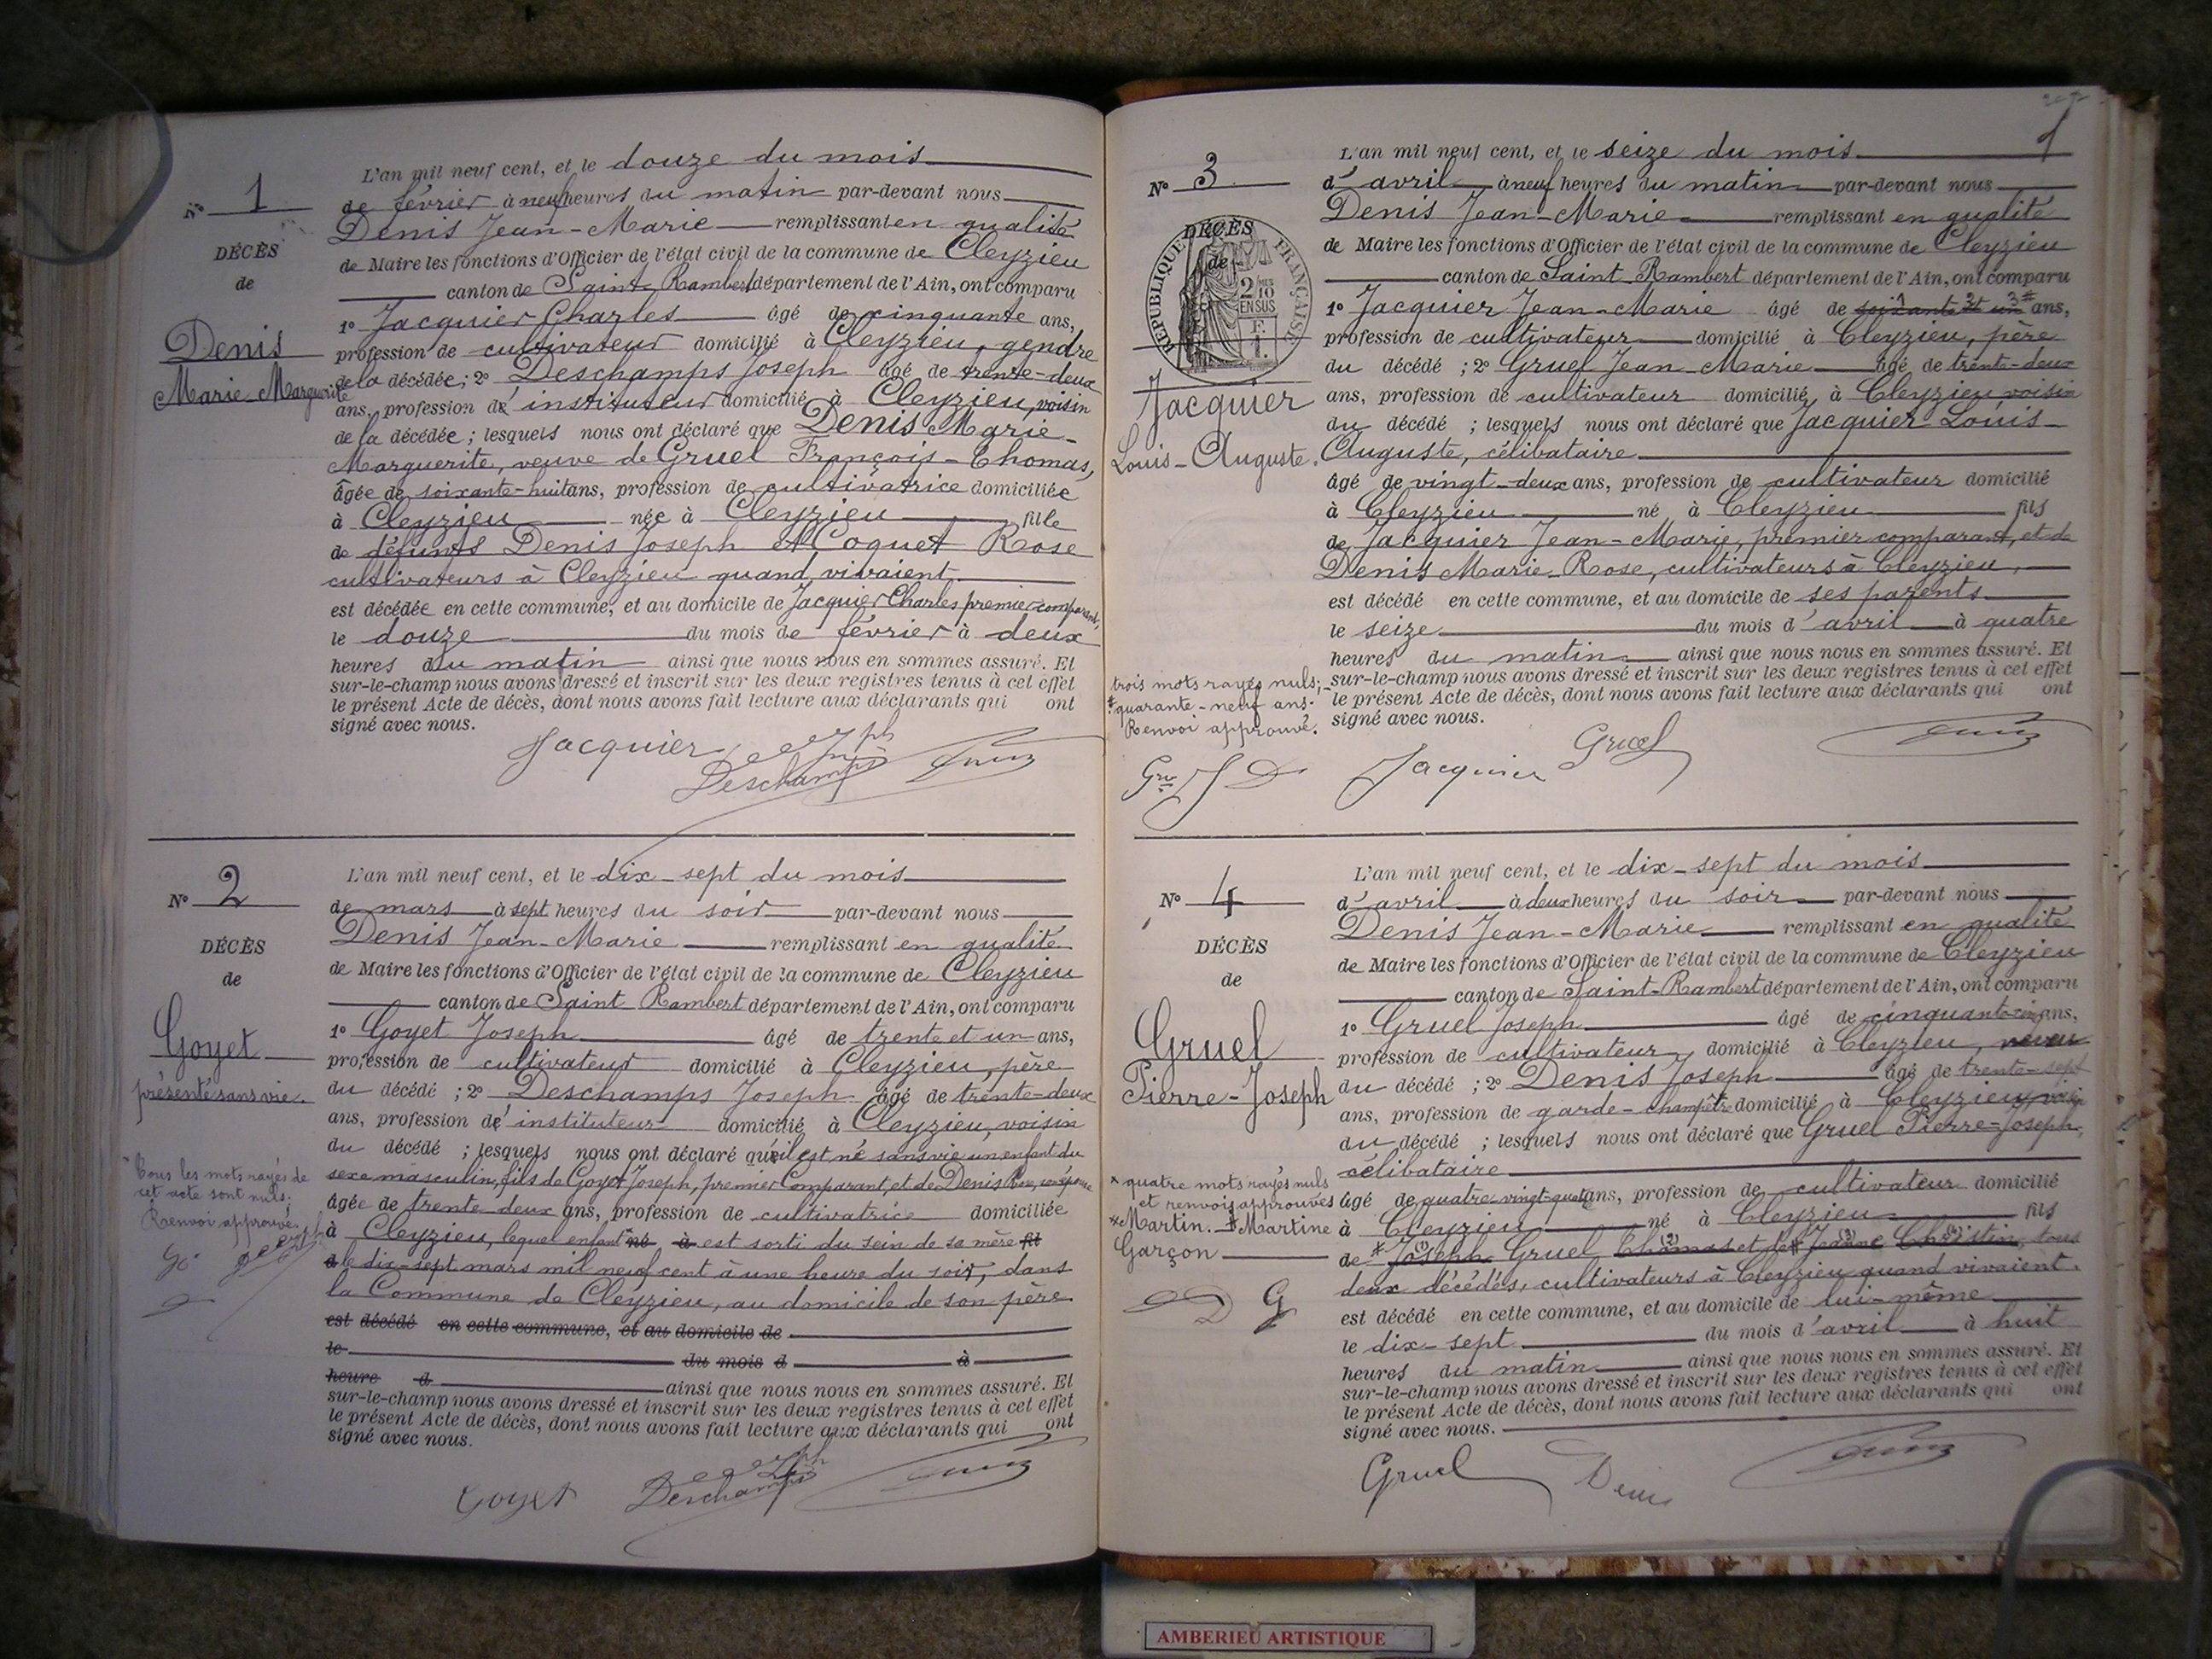 L'an mil neuf cent, et le douze du mois
N° 1
de février à neuf heures du matin par-devant nous
Denis Jean-Marie remplissant en qualité
DÉCÈS
de Maire les fonctions d'Officier de l'état civil de la commune de Cleyzieu
de
canton de Saint-Rambert département de l'Ain, ont comparu
1° Jacquier Charles âgé de cinquante ans,
Denis
profession de cultivateur domicilié à Cleyzieu, gendre
Marie-Marguerite
de la décédée; 2° Deschamps Joseph âgé de trente-deux
ans, profession d'instituteur domicilié à Cleyzieu, voisin
de la décédée; lesquels nous ont déclaré que Denis Marie-
Marguerite, veuve de Gruel François-Thomas,
âgée de soixante-huit ans, profession de cultivatrice domiciliée
à Cleyzieu née à Cleyzieu fille
de défunts Denis Joseph et Coquet Rose
cultivateurs à Cleyzieu quand vivaient
est décédée en cette commune, et au domicile de Jacquier Charles premier comparant,
le douze du mois de février à deux
heures du matin ainsi que nous nous en sommes assuré. Et
sur-le-champ nous avons dressé et inscrit sur les deux registres tenus à cet effet
le présent Acte de décès, dont nous avons fait lecture aux déclarants qui ont
signé avec nous.
Jacquier Joseph
Deschamps
L'an mil neuf cent, et le dix-sept du mois
N° 2
de mars à sept heures du soir par-devant nous
Denis Jean-Marie remplissant en qualité
DÉCÈS
de Maire les fonctions d'Officier de l'état civil de la commune de Cleyzieu
de
canton de Saint-Rambert département de l'Ain, ont comparu
1° Goyet Joseph âgé de trente et un ans,
Goyet
profession de cultivateur domicilié à Cleyzieu, père
présenté sans vie.
du décédé; 2° Deschamps Joseph âgé de trente-deux
ans, profession d'instituteur domicilié à Cleyzieu, voisin
du décédé; lesquels nous ont déclaré qu'il est né sans vie un enfant du
sexe masculin, fils de Goyet Joseph, premier Comparant, et de Denis
Tous les mots rayés de
cet acte sont nuls.
Renvoi approuvé.
âgée de trente-deux ans, profession de cultivatrice domiciliée
à Cleyzieu, lequel enfant né à est sorti du sein de sa mère fil
d le dix-sept mars mil neuf cent à une heure du soir, dans
la Commune de Cleyzieu, au domicile de son père
est décédé en cette commune, et au domicile de
le du mois d à
heure d ainsi que nous nous en sommes assuré. Et
sur-le-champ nous avons dressé et inscrit sur les deux registres tenus à cet effet
le présent Acte de décès, dont nous avons fait lecture aux déclarants qui ont
signé avec nous.
Goyet Joseph
Deschamps
1
L'an mil neuf cent, et le seize du mois
N° 3
d'avril à neuf heures du matin par-devant nous
Denis Jean-Marie remplissant en qualité
RÉPUBLIQUE FRANÇAISE
2 MES
10
EN SUS
DÉCÈS
de Maire les fonctions d'Officier de l'état civil de la commune de Cleyzieu
de
canton de Saint-Rambert département de l'Ain, ont comparu
1° Jacquier Jean-Marie âgé de soixante et un # ans,
profession de cultivateur domicilié à Cleyzieu, père
du décédé; 2° Gruel Jean-Marie âgé de trente-deux
Jacquier
Louis-Auguste.
ans, profession de cultivateur domicilié à Cleyzieu voisin
du décédé; lesquels nous ont déclaré que Jacquier Louis-
Auguste, célibataire
âgé de vingt-deux ans, profession de cultivateur domicilié
à Cleyzieu né à Cleyzieu fils
de Jacquier Jean-Marie, premier comparant, et de
Denis Marie-Rose, cultivateurs à Cleyzieu,
est décédé en cette commune, et au domicile de ses parents
le seize du mois d'avril à quatre
heures du matin ainsi que nous nous en sommes assuré. Et
sur-le-champ nous avons dressé et inscrit sur les deux registres tenus à cet effet
le présent Acte de décès, dont nous avons fait lecture aux déclarants qui ont
signé avec nous.
trois mots rayés nuls;
# quarante-neuf ans.
Renvoi approuvé.
Gru J D Jacquier Gruel
L'an mil neuf cent, et le dix-sept du mois
N° 4
d'avril à deux heures du soir par-devant nous
Denis Jean-Marie remplissant en qualité
DÉCÈS
de Maire les fonctions d'Officier de l'état civil de la commune de Cleyzieu
de
canton de Saint-Rambert département de l'Ain, ont comparu
1° Gruel Joseph âgé de cinquante-cinq ans,
Gruel
Pierre-Joseph
profession de cultivateur domicilié à Cleyzieu, neveu
du décédé; 2° Denis Joseph âgé de trente-sept
ans, profession de garde-champêtre domicilié à Cleyzieu, voisin
du décédé; lesquels nous ont déclaré que Gruel Pierre-Joseph,
célibataire
âgé de quatre-vingt-quatre ans, profession de cultivateur domicilié
à Cleyzieu né à Cleyzieu fils
de # Joseph Gruel Thomas et de # Jeanne Christin, tous
deux décédés, cultivateurs à Cleyzieu quand vivaient.
est décédé en cette commune, et au domicile de lui-même
le dix-sept du mois d'avril à huit
heures du matin ainsi que nous nous en sommes assuré. Et
sur-le-champ nous avons dressé et inscrit sur les deux registres tenus à cet effet
le présent Acte de décès, dont nous avons fait lecture aux déclarants qui ont
signé avec nous.
quatre mots rayés nuls
et renvois approuvés
# Martin. # Martine
Garçon
D G
Gruel Denis
AMBERIEU ARTISTIQUE